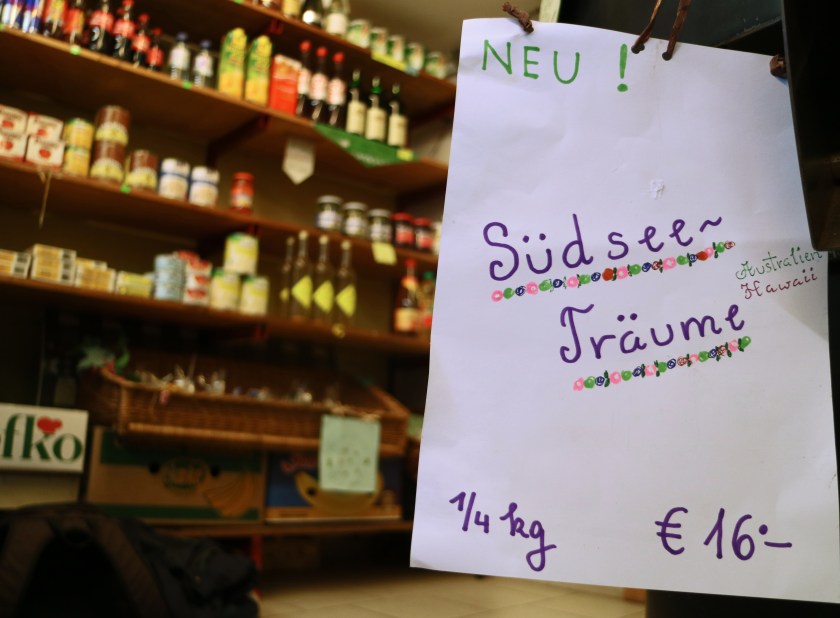 NEU !
Südsee~
Australien
Hawaii
Träume
1/4 kg
€ 16.–
fko